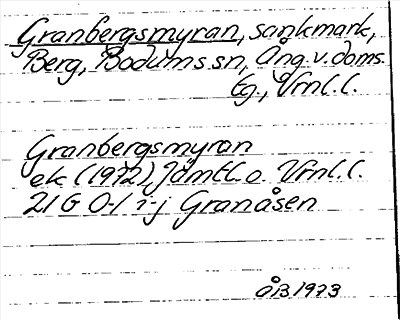 Granbergsmyran, sankmark,
Berg, Bodums sn, Ång. v. doms.
tg., Vrnl. l.
Granbergsmyran
ek (1972) Jämtl. o. Vrnl. l.
21 G 0-1 i-j Granåsen
ÅB 1973